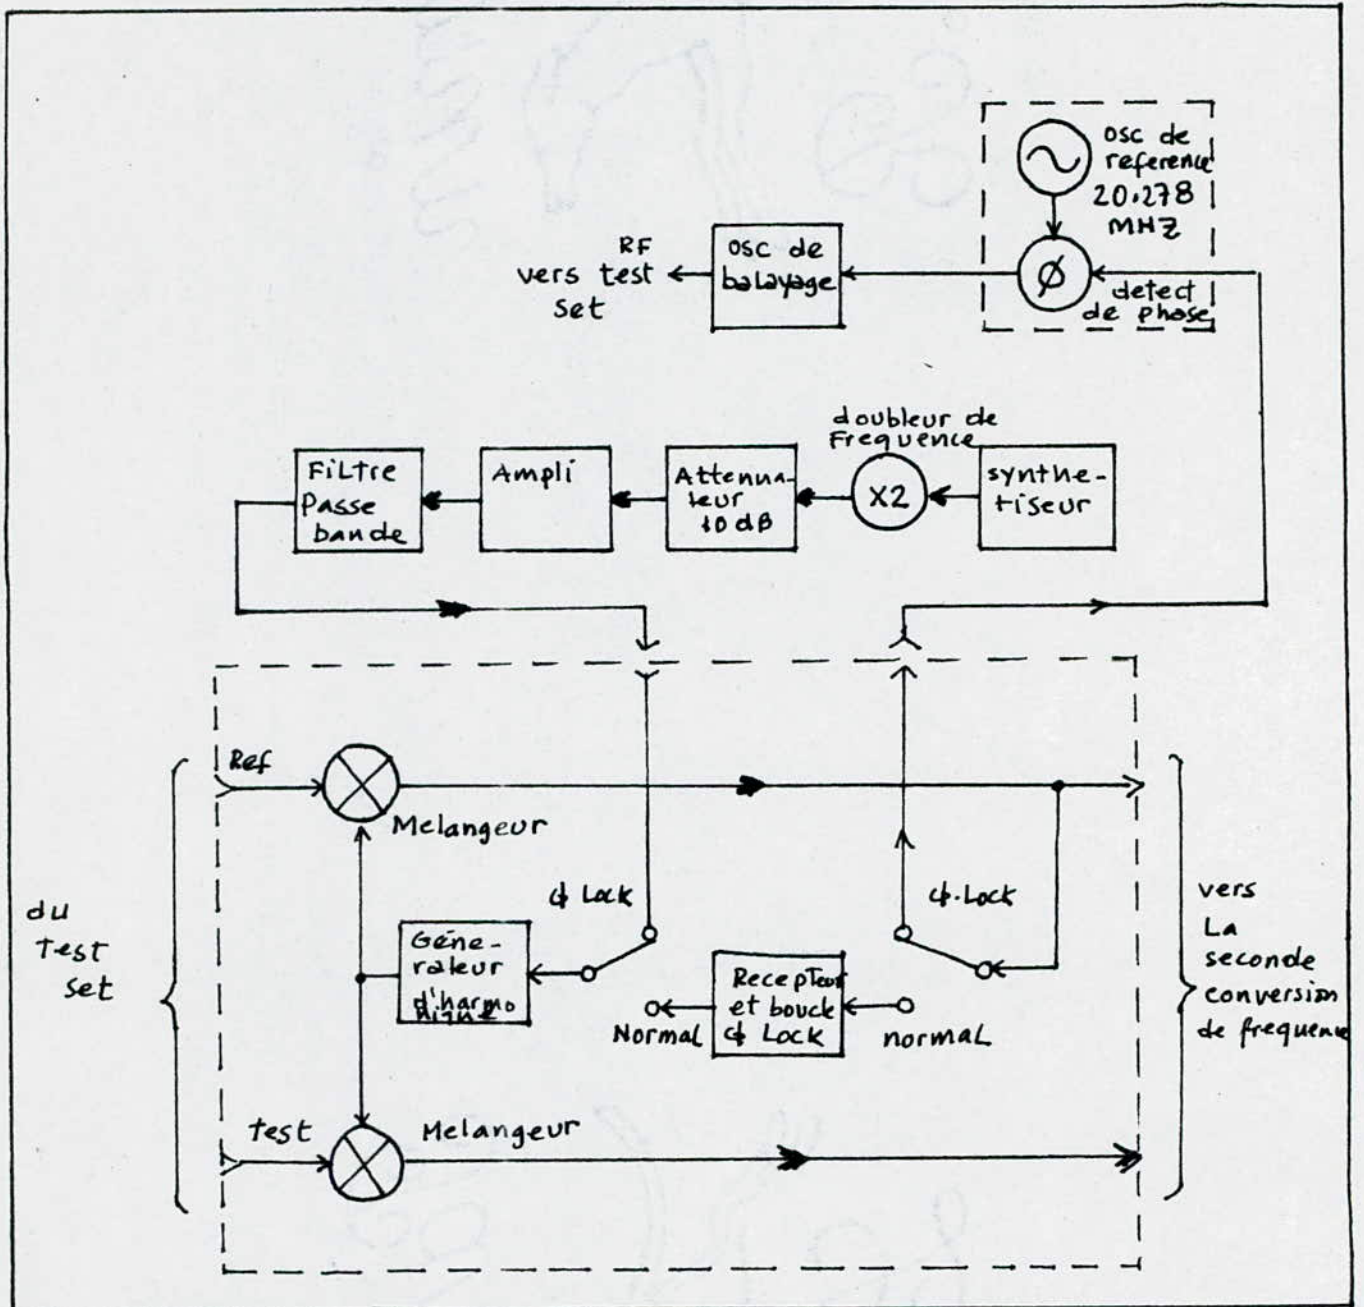 osc de
reference
20.278
MHZ
RF
vers test
set
osc de
balayage
Ø
detect
de phase
doubleur de
Frequence
FiLtre
Passe
bande
Ampli
Attenua-
teur
10 dB
X2
synthe-
tiseur
Ref
Melangeur
ϕ Lock
ϕ.Lock
du
Test
set
Géne-
rateur
d'harmo
nique
Recepteur
et bouck
ϕ Lock
Normal
normaL
vers
La
seconde
conversion
de frequence
test
Melangeur